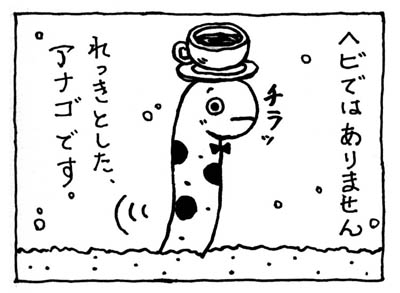 ヘビではありません
チラッ
れっきとした、
アナゴです。